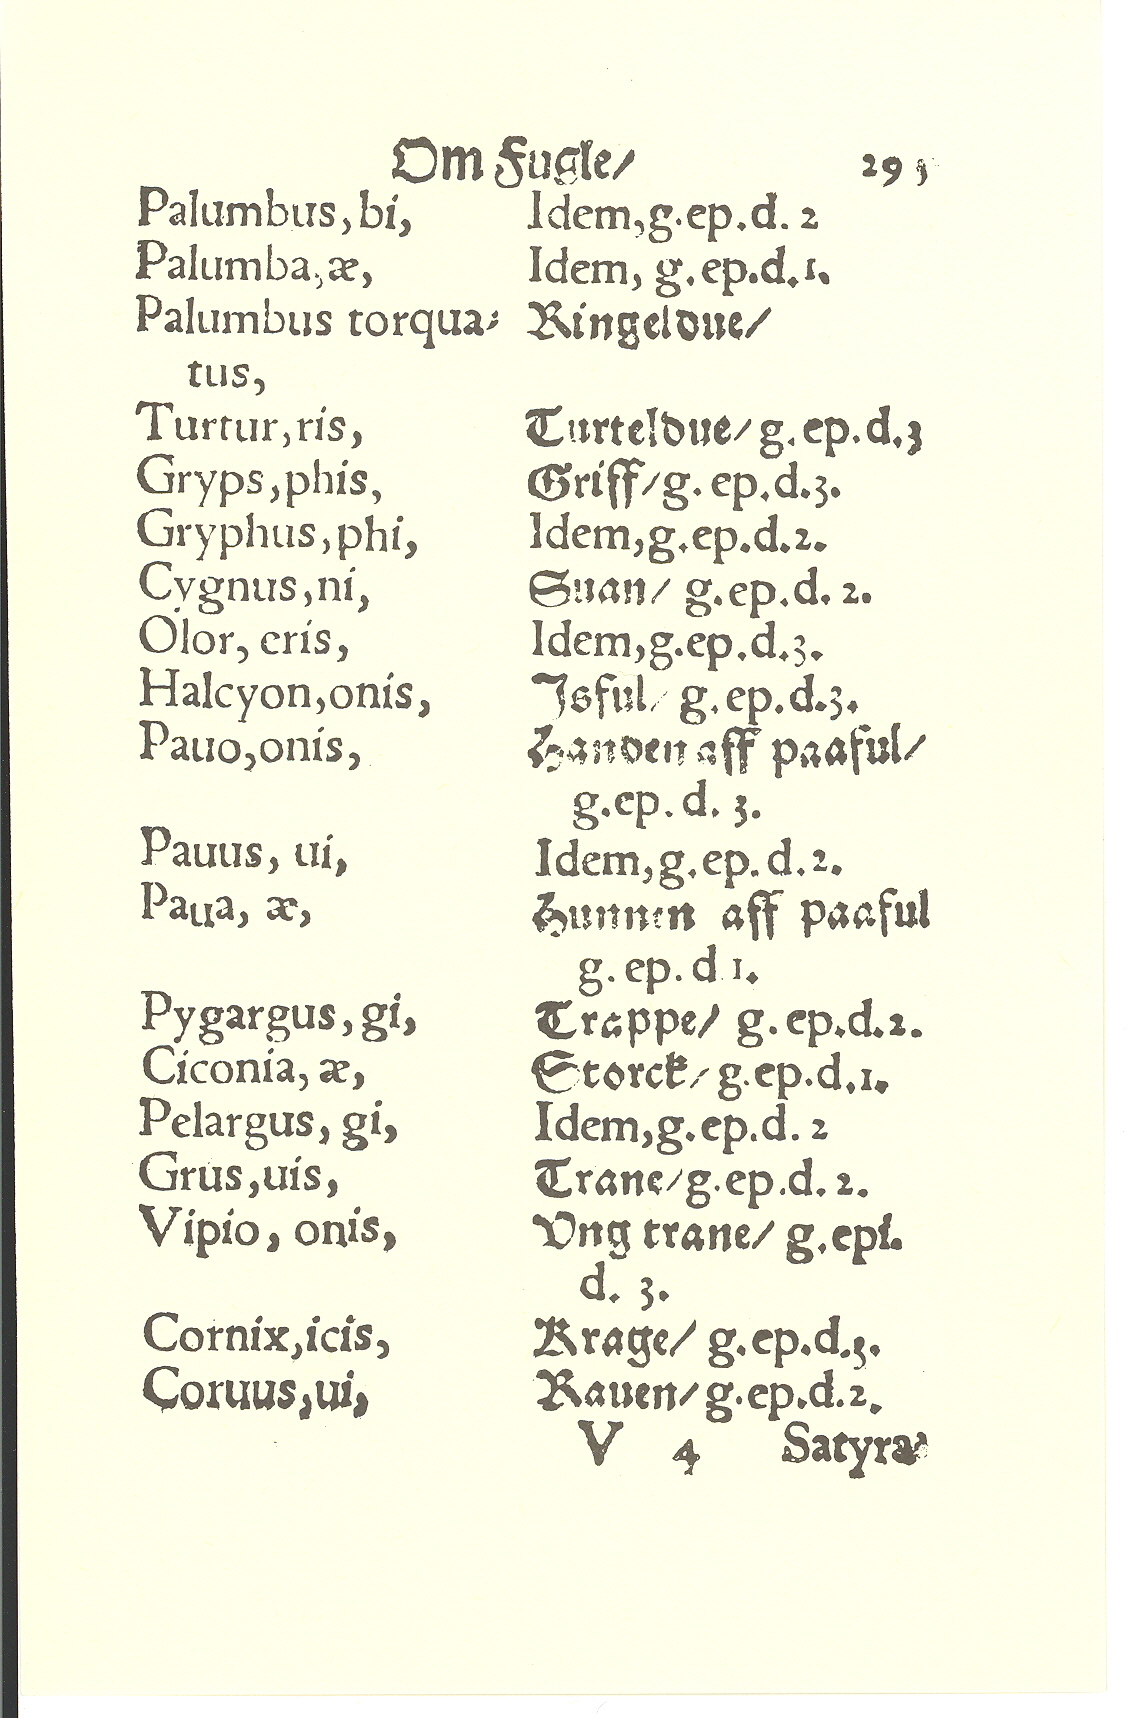 Om Fugle/ 295
Palumbus, bi, Idem, g. ep. d. 2
Palumba, æ, Idem, g. ep. d. 1.
Palumbus torqua⸗ Ringeldue/
tus,
Turtur, ris, Turteldue/ g. ep. d. 3
Gryps, phis, Griff/ g. ep. d. 3.
Gryphus, phi, Idem, g. ep. d. 2.
Cygnus, ni, Suan/ g. ep. d. 2.
Olor, eris, Idem, g. ep. d. 3.
Halcyon, onis, Jsful/ g. ep. d. 3.
Pauo, onis, Handen aff paaful/
g. ep. d. 3.
Pauus, ui, Idem, g. ep. d. 2.
Paua, æ, Hunnen aff paaful
g. ep. d 1.
Pygargus, gi, Trappe/ g. ep. d. 2.
Ciconia, æ, Storck/ g. ep. d. 1.
Pelargus, gi, Idem, g. ep. d. 2
Grus, uis, Trane/ g. ep. d. 2.
Vipio, onis, Vng trane/ g. epi.
d. 3.
Cornix, icis, Krage/ g. ep. d. 3.
Coruus, ui, Rauen/ g. ep. d. 2.
V 4 Satyra⸗